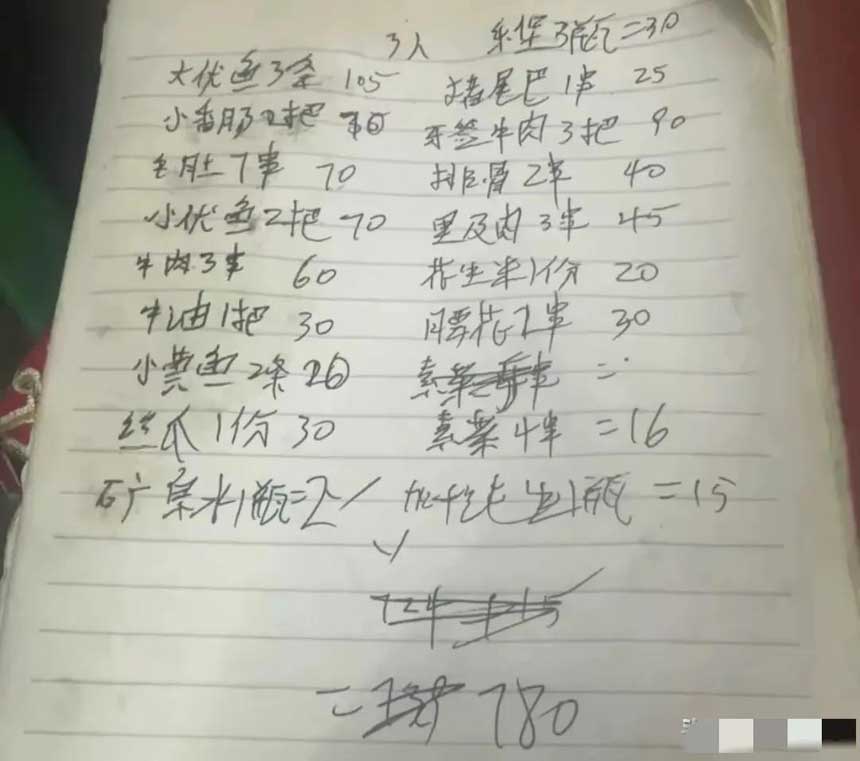 3人 乐堡3瓶=30
大优鱼3条 105 猪尾巴1串 25
小香肠2把 牙签牛肉3把 90
毛肚7串 70 排骨2串 40
小优鱼2把 70 里及肉3串 45
牛肉3串 60 花生米1份 20
牛油1把 30 腰花2串 30
小黄鱼2条 20 素
丝瓜1份 30 素菜4串 =16
矿泉水1瓶=2 1瓶 =15
= 780